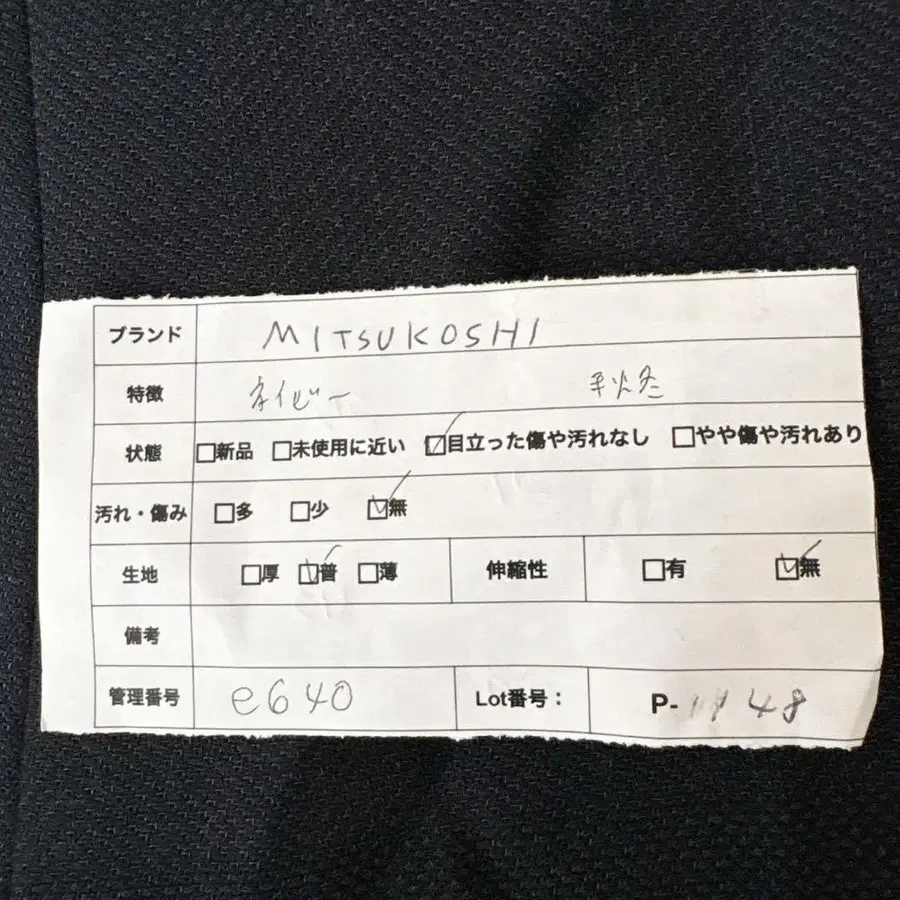 ブランド MITSUKOSHI
特徴 ネイビー 秋冬
状態 □新品 □未使用に近い ☑目立った傷や汚れなし □やや傷や汚れあり
汚れ・傷み □多 □少 ☑無
生地 □厚 ☑普 □薄 伸縮性 □有 ☑無
備考
管理番号 e640 Lot番号： P- 48